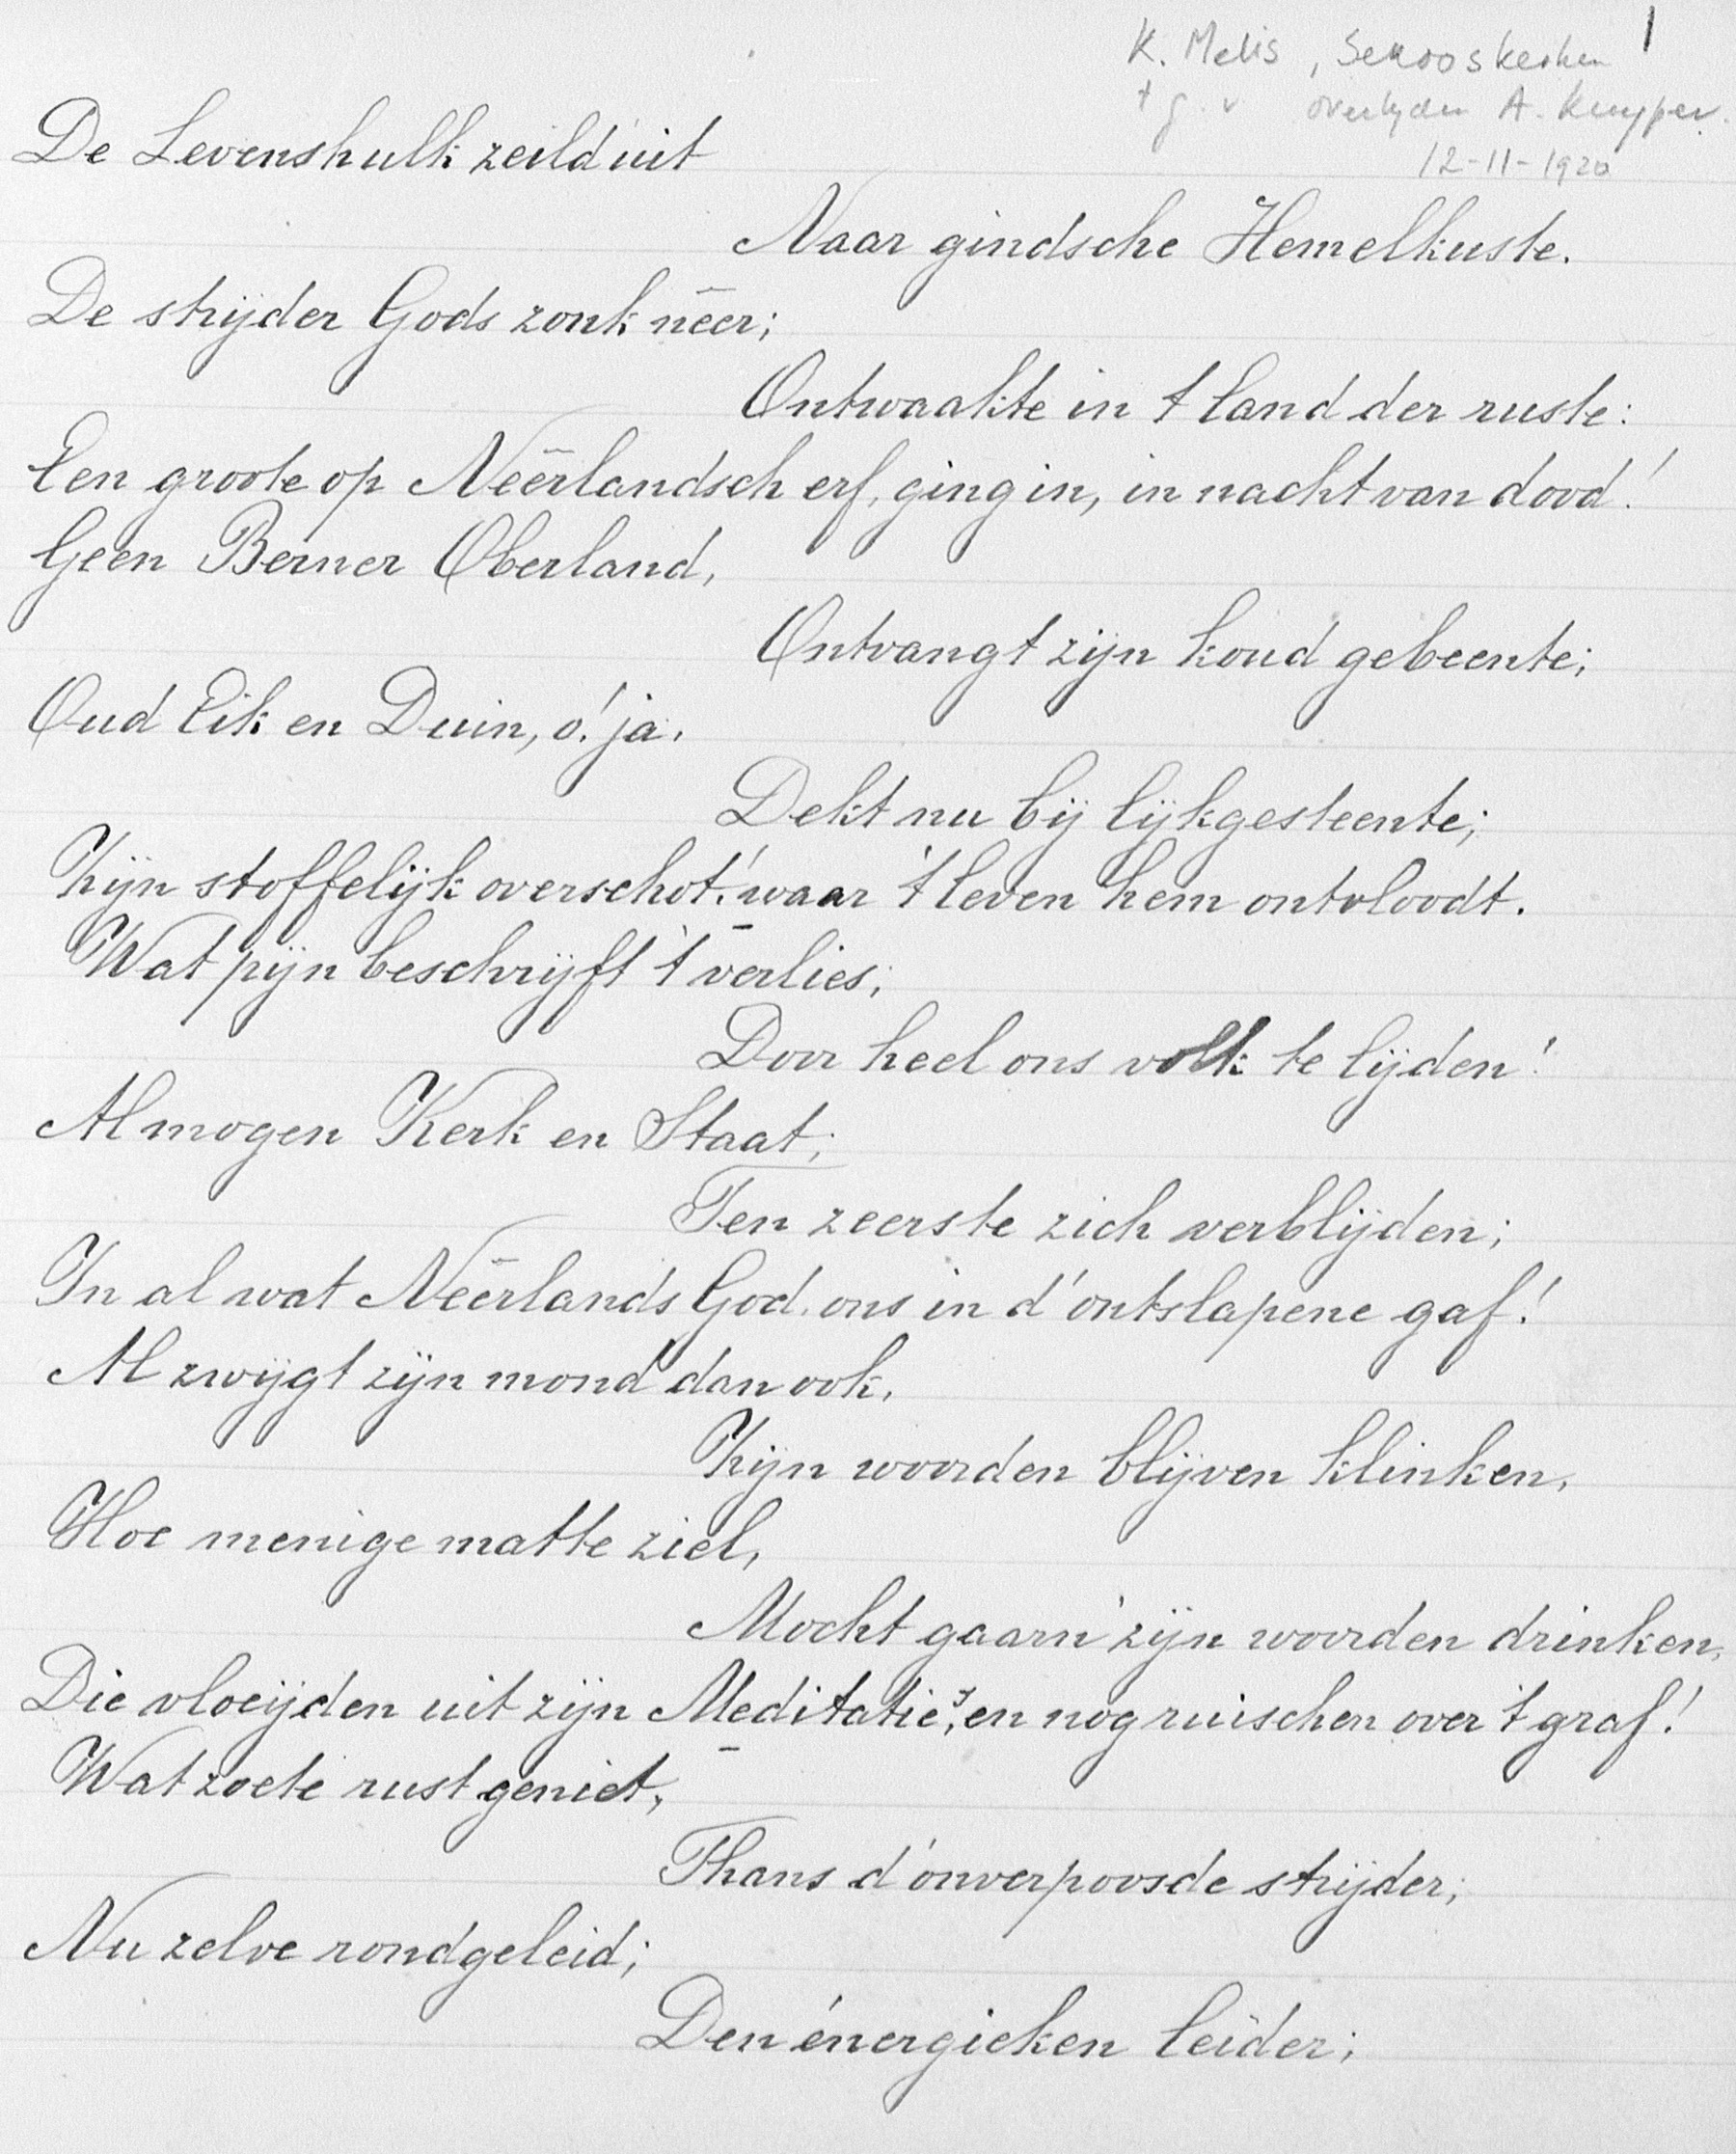 K. Melis, Serooskerken 1
t g. v overlijden A. Kuyper.
12-11-1920
De Levenshulk zeild' uit
Naar gindsche Hemelkuste.
De strijder Gods zonk neer;
Ontwaakte in 't land der ruste:
Een groote op Neerlandsch erf, ging in, in nacht van dood!
Geen Berner Oberland,
Ontvangt zijn koud gebeente;
Oud Eik en Duin, o! ja.
Dekt nu bij lijkgesteente;
Zijn stoffelijk overschot! waar 't leven hem ontvloodt.
Wat pijn beschrijft 't verlies;
Door heel ons volk te lijden!
Al mogen Kerk en Staat;
Ten zeerste zich verblijden;
In al wat Neerlands God, ons in d' ontslapene gaf!
Al zwijgt zijn mond dan ook,
Zijn woorden blijven klinken,
Hoe menige matte ziel,
Mocht gaarn' zijn woorden drinken,
Die vloeijden uit zijn Meditatie's, en nog ruischen over 't graf!
Wat zoete rust geniet,
Thans d' onverpoosde strijder;
Nu zelve rondgeleid;
Den énergieken leider;